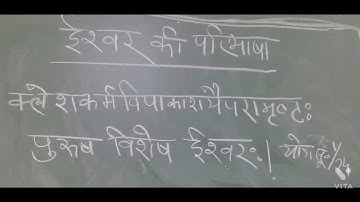 ईश्वर की परिभाषा
क्लेशकर्मविपाकाशयैपरामृष्टः
पुरुष विशेष ईश्वरः। योग सू॰ 1/24
VITA